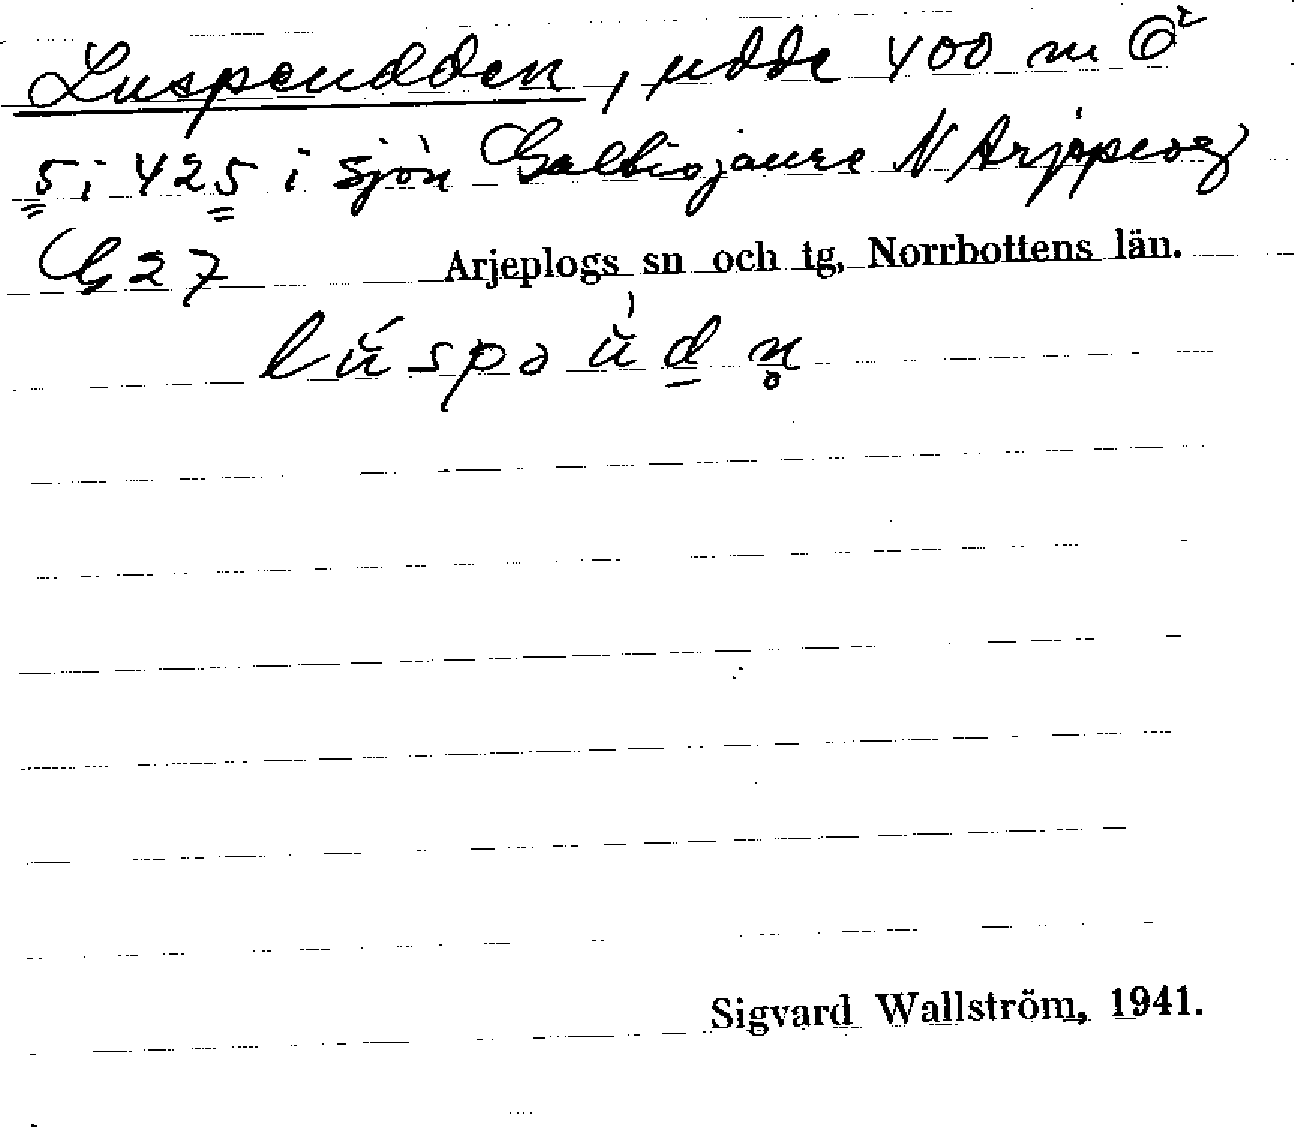 Luspeudden, udde 400 m O²
5 i 425 i sjön Galbiojaure N Arjeplog
G 27 Arjeplogs sn och tg, Norrbottens län.
lúspəùdn̥
Sigvard Wallström, 1941.